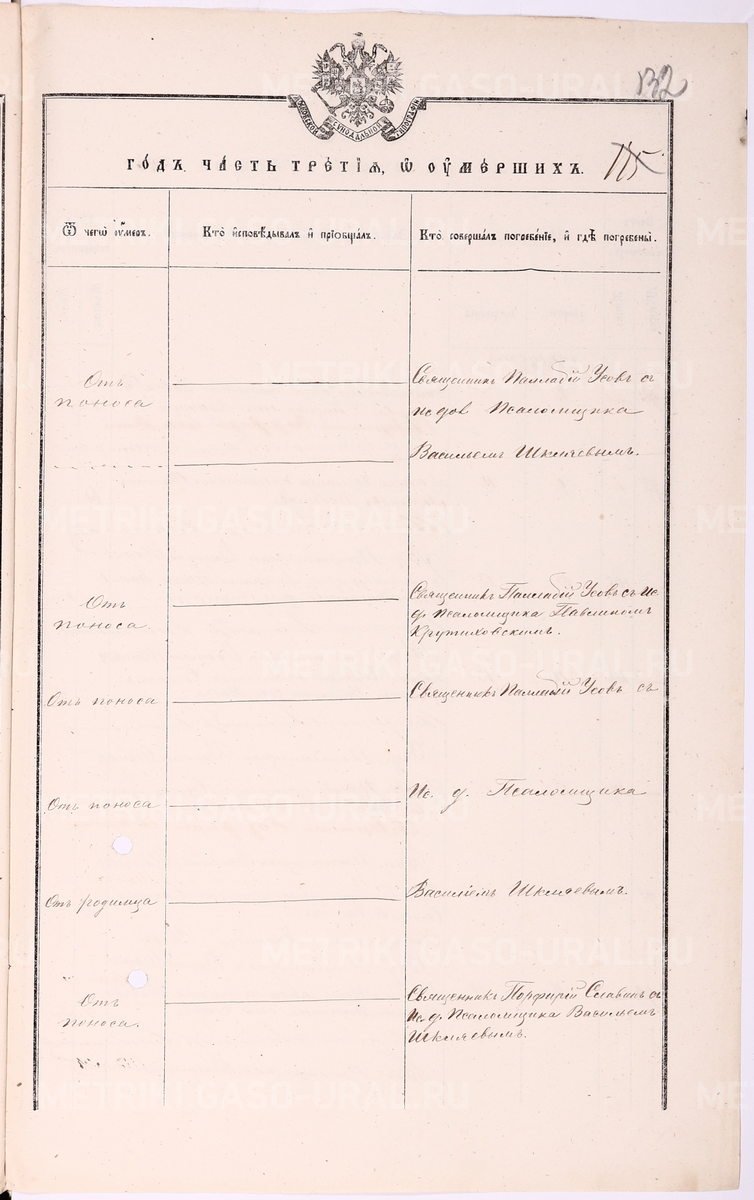 132
МОСКОВСКОЙ СѴНОДАЛЬНОЙ ТИПОГРАФІИ
ГОДЪ. ЧАСТЬ ТРЕТІЯ, Ѿ ОУМЕРШИХЪ. 115
Ѿ чегѡ оумеръ.
Кто исповѣдывалъ и пріобщалъ.
Кто совершалъ погребеніе, и гдѣ погребены.
Отъ
поноса
Священникъ Палладій Усовъ съ
ис дов Псаломщика
Васильемъ Шкляевымъ.
Отъ
поноса.
Священникъ Палладій Усовъ съ Ис.
д. Псаломщика Павлиномъ
Крутиховскимъ.
Отъ поноса
Священникъ Палладій Усовъ съ
Отъ поноса
Ис. д. Псаломщика
Отъ родимца
Василіемъ Шкляевымъ.
Отъ
поноса.
Священникъ Порфирій Славнинъ съ
Ис. д. Псаломщика Васильемъ
Шкляевымъ.
METRIKI.GASO-URAL.RU